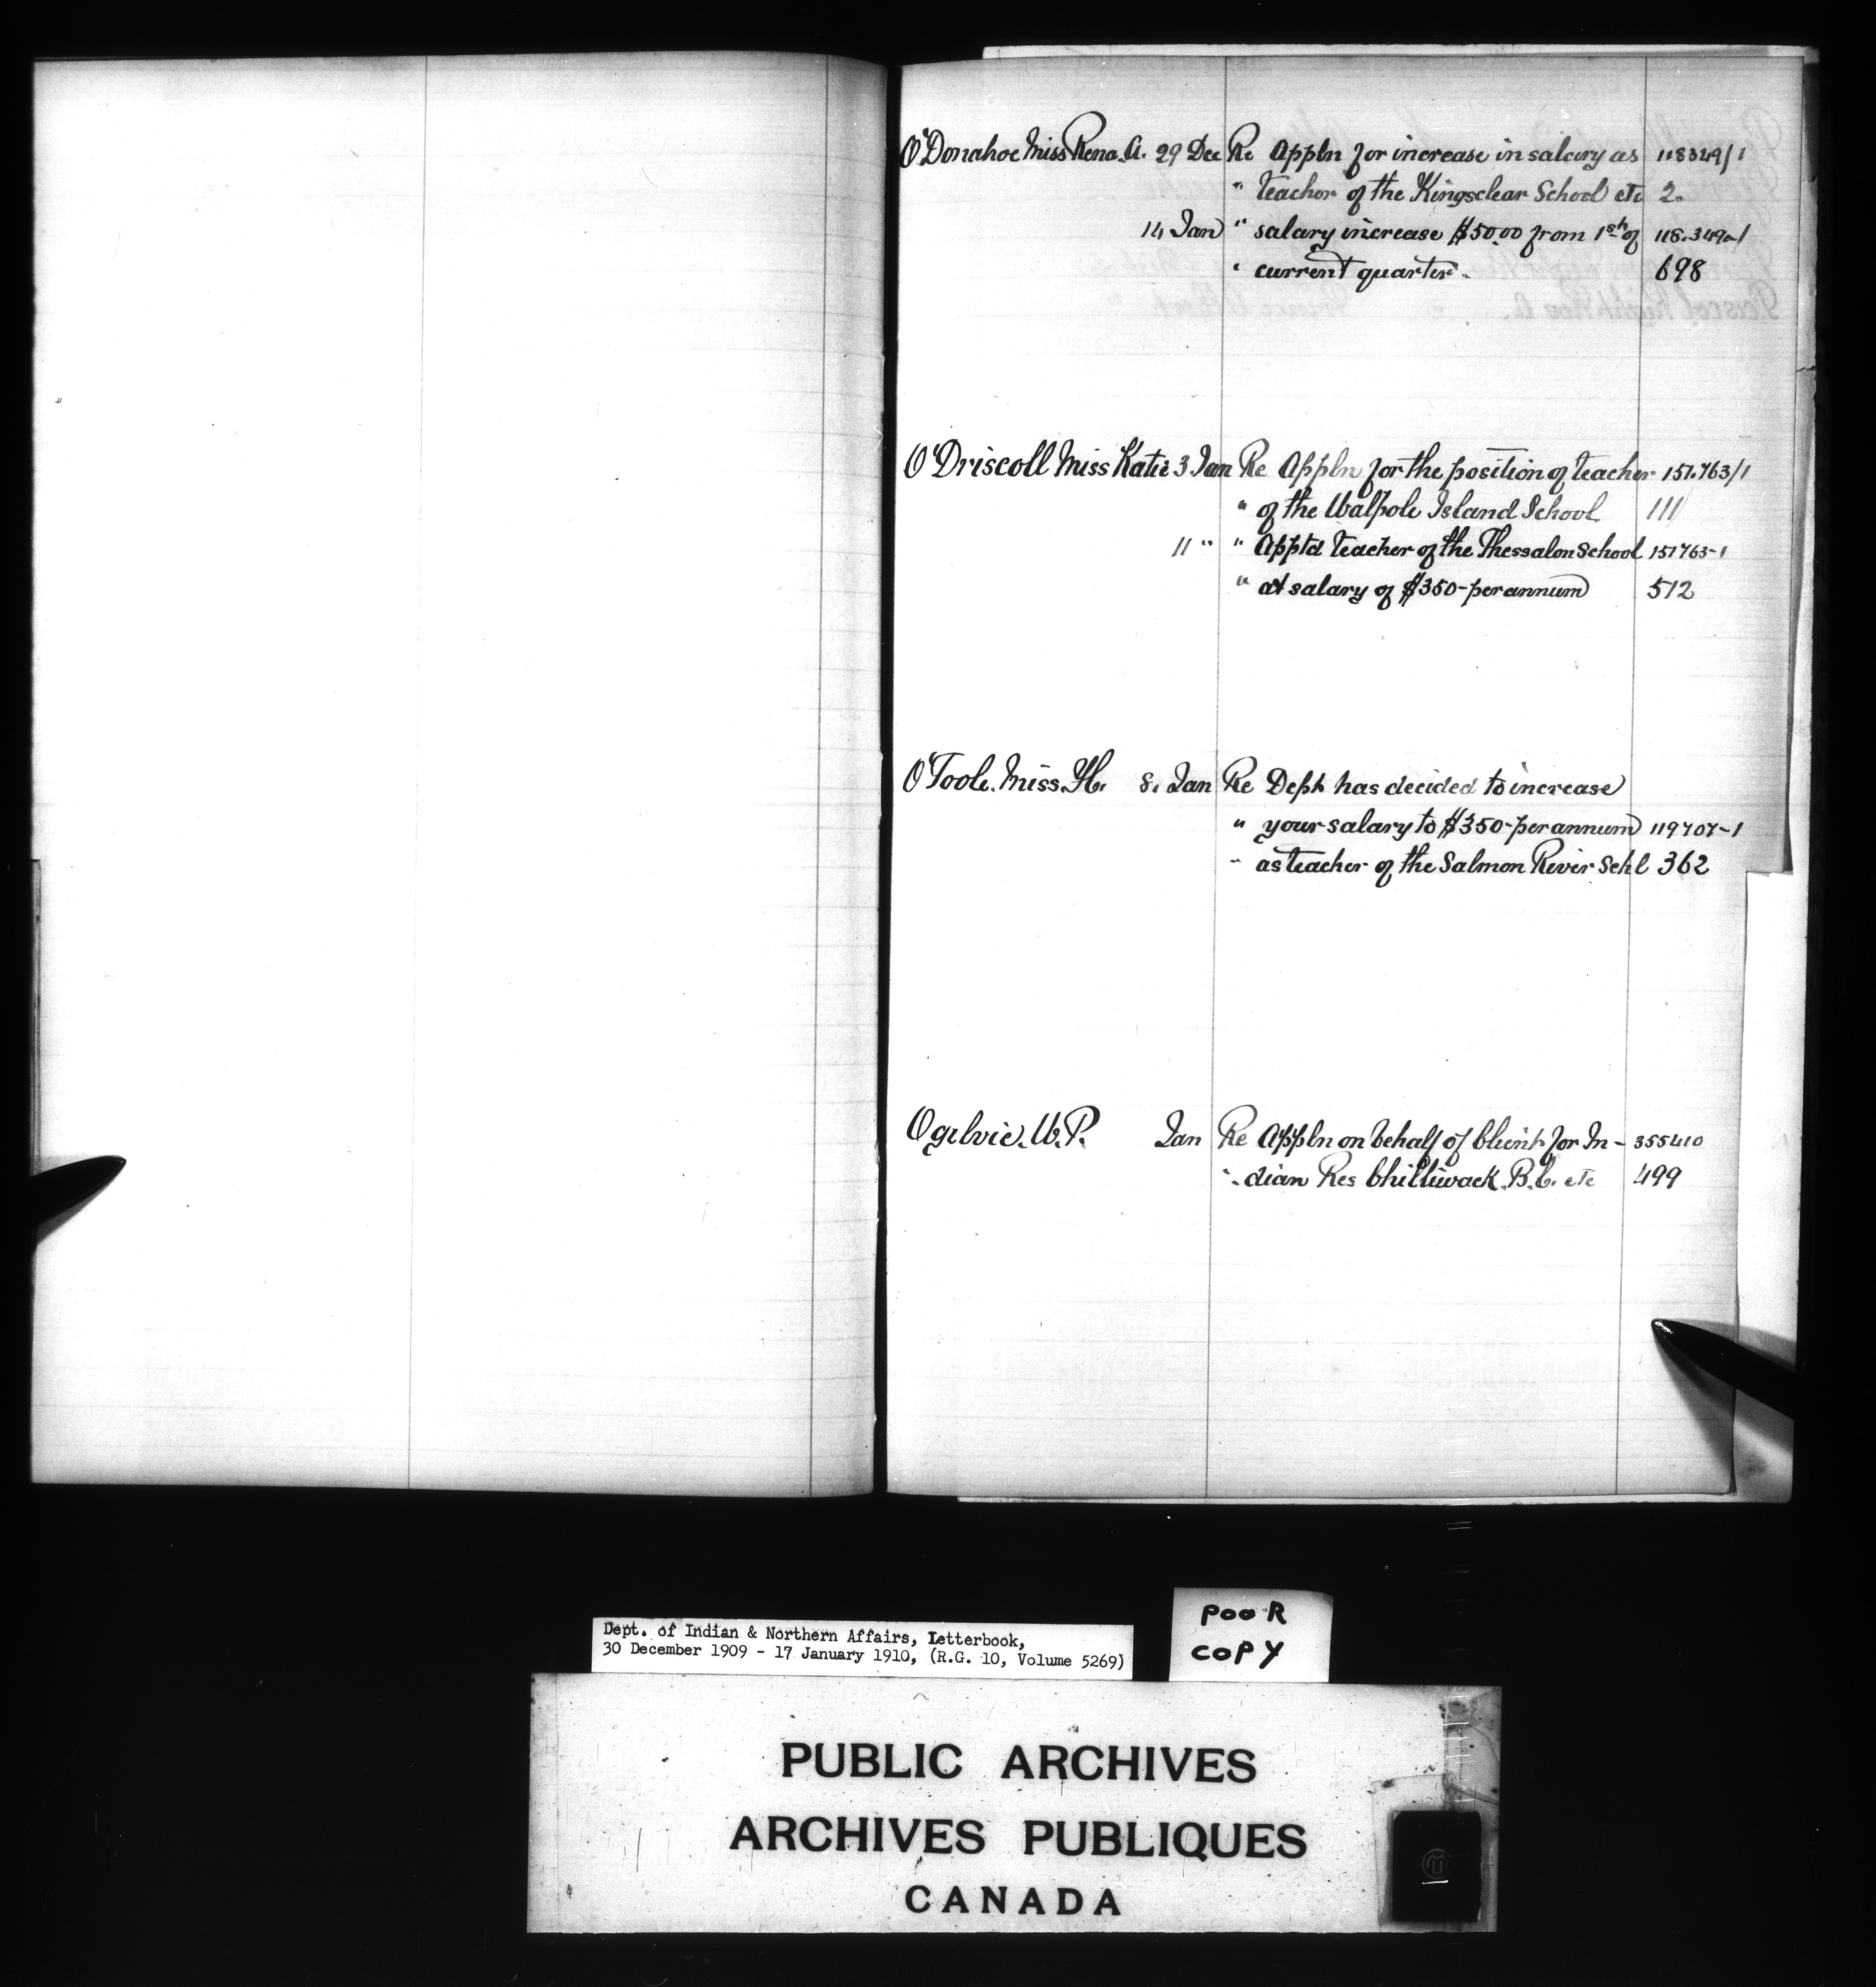 O'Donahoe Miss Rena. A. 29 Dec Re Appln for increase in salary as 118349/1
" teacher of the Kingsclear School etc 2.
14 Jan " salary increase $50.00 from 1st of 118.349-1
" current quarter. 698
O'Driscoll Miss Katie 3 Jan Re Appln for the position of teacher 151.763/1
" of the Walpole Island School 111
11 " " Apptd teacher of the Thessalon School 151763-1
" at salary of $350- per annum 512
O'Toole. Miss. H. 8. Jan Re Dept has decided to increase
" your salary to $350- per annum 119707-1
" as teacher of the Salmon River Schl 362
Ogilvie. W. P. Jan Re Appln on behalf of Client for In- 355410
" dian Res Chilliwack. B.C. etc 499
Dept. of Indian & Northern Affairs, Letterbook,
30 December 1909 - 17 January 1910, (R.G. 10, Volume 5269)
POOR
COPY
PUBLIC ARCHIVES
ARCHIVES PUBLIQUES
CANADA